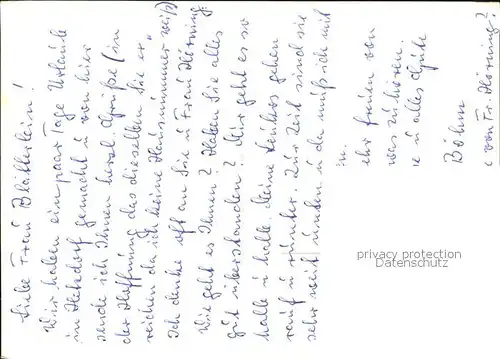 Liebe Frau Blatterlein!
Wir haben ein paar Tage Urlaub
in Hetzdorf gemacht u von hier
sende ich Ihnen herzl. Grüße (in
der Hoffnung das dieselben Sie er-
reichen da ich keine Hausnummer weiß)
Ich denke oft an Sie u Frau Hörning.
Wie geht es Ihnen? Haben Sie alles
gut überstanden? Mir geht es so
halle u halle. Meine Leukos gehen
rauf u runter. Zur Zeit sind sie
sehr weit unten u da muß ich mit
in.
ehr freuen von
was zu hören.
u alles Gute
Böhm
(von Fr. Hörning?
privacy protection
Datenschutz